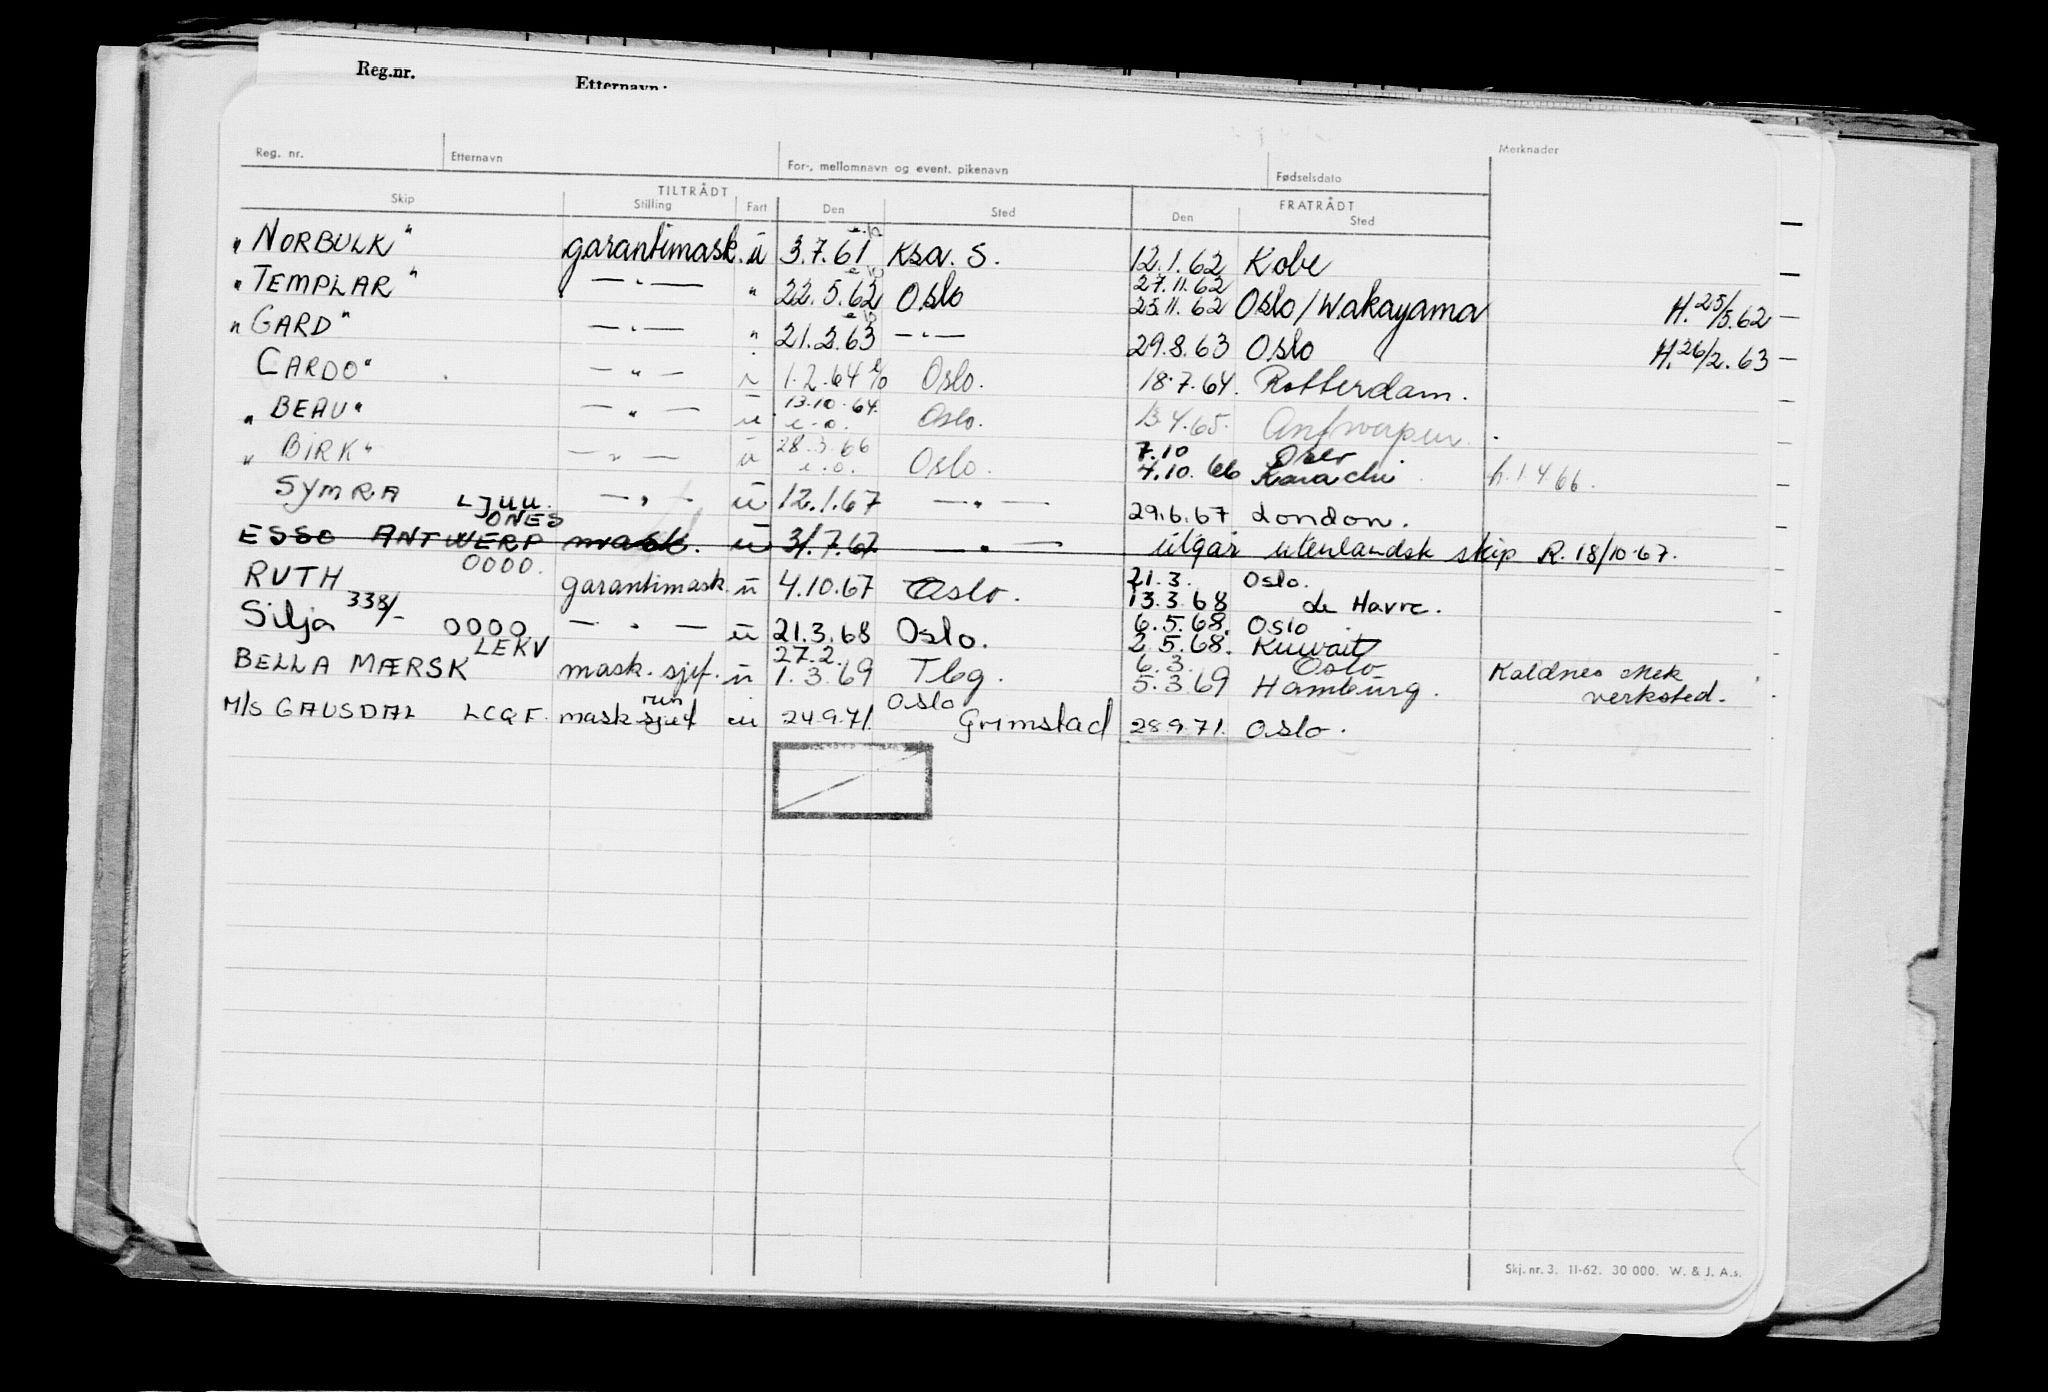 Reg.nr. Etternavn:
Reg. nr. Etternavn For-, mellomnavn og event. pikenavn Fødselsdato Merknader
TILTRÅDT FRATRÅDT
Skip Stilling Fart Den Sted Den Sted
"NORBULK" garantimask. u 3.7.61 e.o Ksa. S. 12.1.62 Kobe
"TEMPLAR" — " — " 22.5.62 e.o Oslo 27.11.62 25.11.62 Oslo/Wakayama H. 25/5.62 —
"GARD" — " — " 21.2.63 e.o — " — 29.8.63 Oslo H. 26/2.63 —
CARDO" — " — 1.2.64 e/o Oslo. 18.7.64. Rotterdam.
"BEAU" — " — u 13.10.64. e.o. Oslo. 13.4.65. Antwerpen.
"BIRK" — " — u 28.3.66 e.o. Oslo. 7.10 Oslo 4.10.66 Karachi h. 1.4.66.
SYMRA LJUU. — " — u 12.1.67 — " — 29.6.67 London.
ESSO ANTWERP ONES mask. u 31.7.67 — " — utgår utenlandsk skip R. 18/10.67.
RUTH OOOO. garantimask. u 4.10.67 Oslo. 21.3. Oslo. 13.3.68 de Havre.
Silja 338/- OOOO — " — u 21.3.68 Oslo. 6.5.68. Oslo 2.5.68. Kuwait
BELLA MÆRSK LEKV mask. sjef. u 27.2. 1.3.69 Tbg. 6.3. Oslo 5.3.69 Hamburg. Kaldnes Mek verksted.
M/S GAUSDAL LCQF. mask sjef run u 24.9.71. Oslo Grimstad 28.9.71. Oslo.
Skj. nr. 3. 11-62. 30 000. W. & J. A.s.